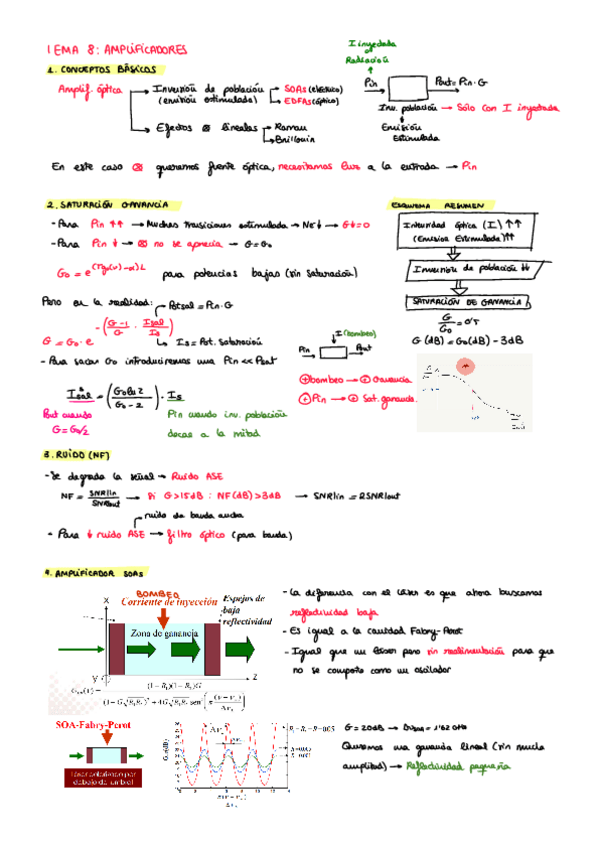 TEMA 8: AMPLIFICADORES
1. CONCEPTOS BÁSICOS
Amplif. óptica
Inversión de población
(emisión estimulada)
SOAs (eléctrico)
EDFAs (óptico)
Efectos ⊗ lineales
Raman
Brillouin
I inyectada
Radiación
Pin
Pout = Pin·G
Inv. población → Sólo con I inyectada
Emisión
Estimulada
En este caso ⊗ queremos fuente óptica, necesitamos luz a la entrada → Pin
2. SATURACIÓN GANANCIA
- Para Pin ↑↑ → Muchas transiciones estimulada → N2 ↓ → G↓=0
- Para Pin ↓ → ⊗ no se aprecia → G=G0
para potencias bajas (sin saturación)
Pero en la realidad:
Potsal = Pin·G
Is = Pot. Saturación
- Para sacar G0 introduciremos una Pin << Pout
Pout cuando
G = G0/2
Pin cuando inv. población
decae a la mitad
ESQUEMA RESUMEN
Intensidad óptica (I) ↑↑
(Emisión Estimulada)↑↑
Inversión de población ↓↓
SATURACIÓN DE GANANCIA
G(dB) = G0(dB) - 3dB
I (bombeo)
Pin
Pout
⊕bombeo → ⊕ Ganancia
⊕Pin → ⊕ Sat. ganancia
3. RUIDO (NF)
- Se degrada la señal → Ruido ASE
NF = SNR|in / SNR|out → Si G>15dB : NF(dB)>3dB → SNR|in = 2SNR|out
ruido de banda ancha
- Para ↓ ruido ASE → filtro óptico (para banda)
4. AMPLIFICADOR SOAS
BOMBEO
Corriente de inyección
Espejos de
baja
reflectividad
X
Zona de ganancia
Y
Z
- La diferencia con el láser es que ahora buscamos
reflectividad baja
- Es igual a la cavidad Fabry-Perot
- Igual que un láser pero sin realimentación para que
no se comporte como un oscilador
SOA-Fabry-Perot
Láser polarizado por
debajo de umbral
G = 20dB
Queremos una ganancia lineal (sin mucha
amplitud) → Reflectividad pequeña